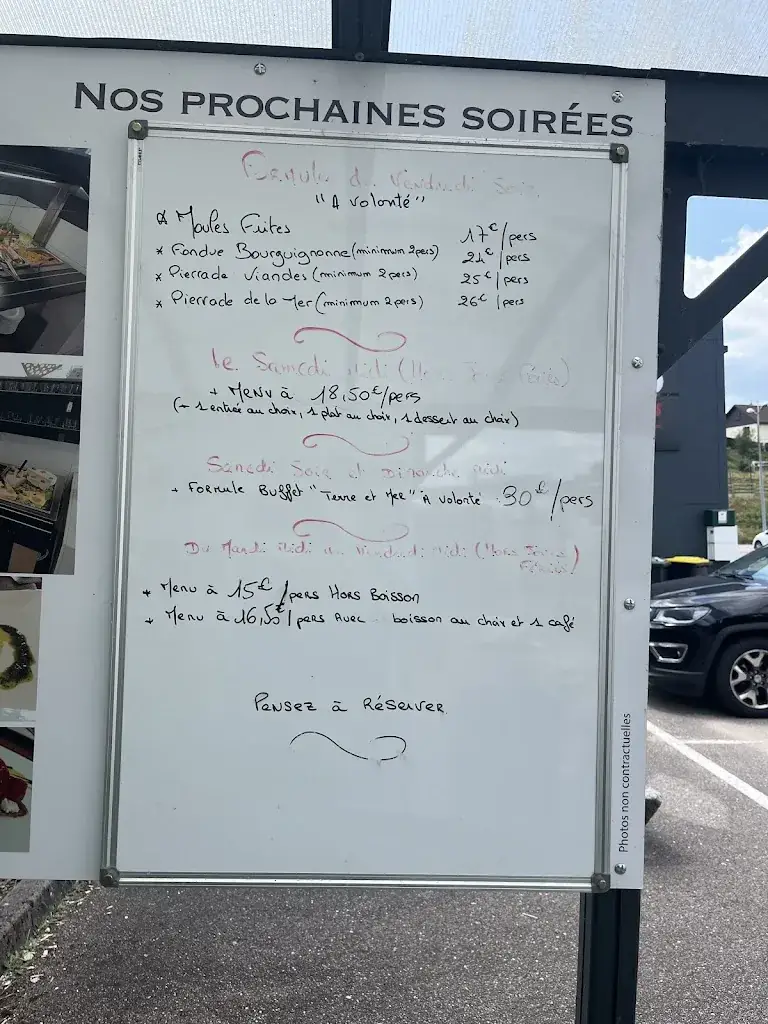 NOS PROCHAINES SOIRÉES
Formule du Vendredi Soir
"A volonté"
* Moules Frites 17€/pers
* Fondue Bourguignonne (minimum 2pers) 24€/pers
* Pierrade Viandes (minimum 2pers) 25€/pers
* Pierrade de la Mer (minimum 2pers) 26€/pers
Le Samedi Midi (Hors Fériés)
+ Menu à 18,50€/pers
(- 1 entrée au choix, 1 plat au choix, 1 dessert au choix)
Samedi Soir et Dimanche Midi
+ Formule Buffet "Terre et Mer" A volonté 30€/pers
Du Mardi Midi au Vendredi Midi (Hors Fériés)
* Menu à 15€/pers Hors Boisson
+ Menu à 16,50€/pers Avec boisson au choix et 1 café
Pensez à Réserver
Photos non contractuelles